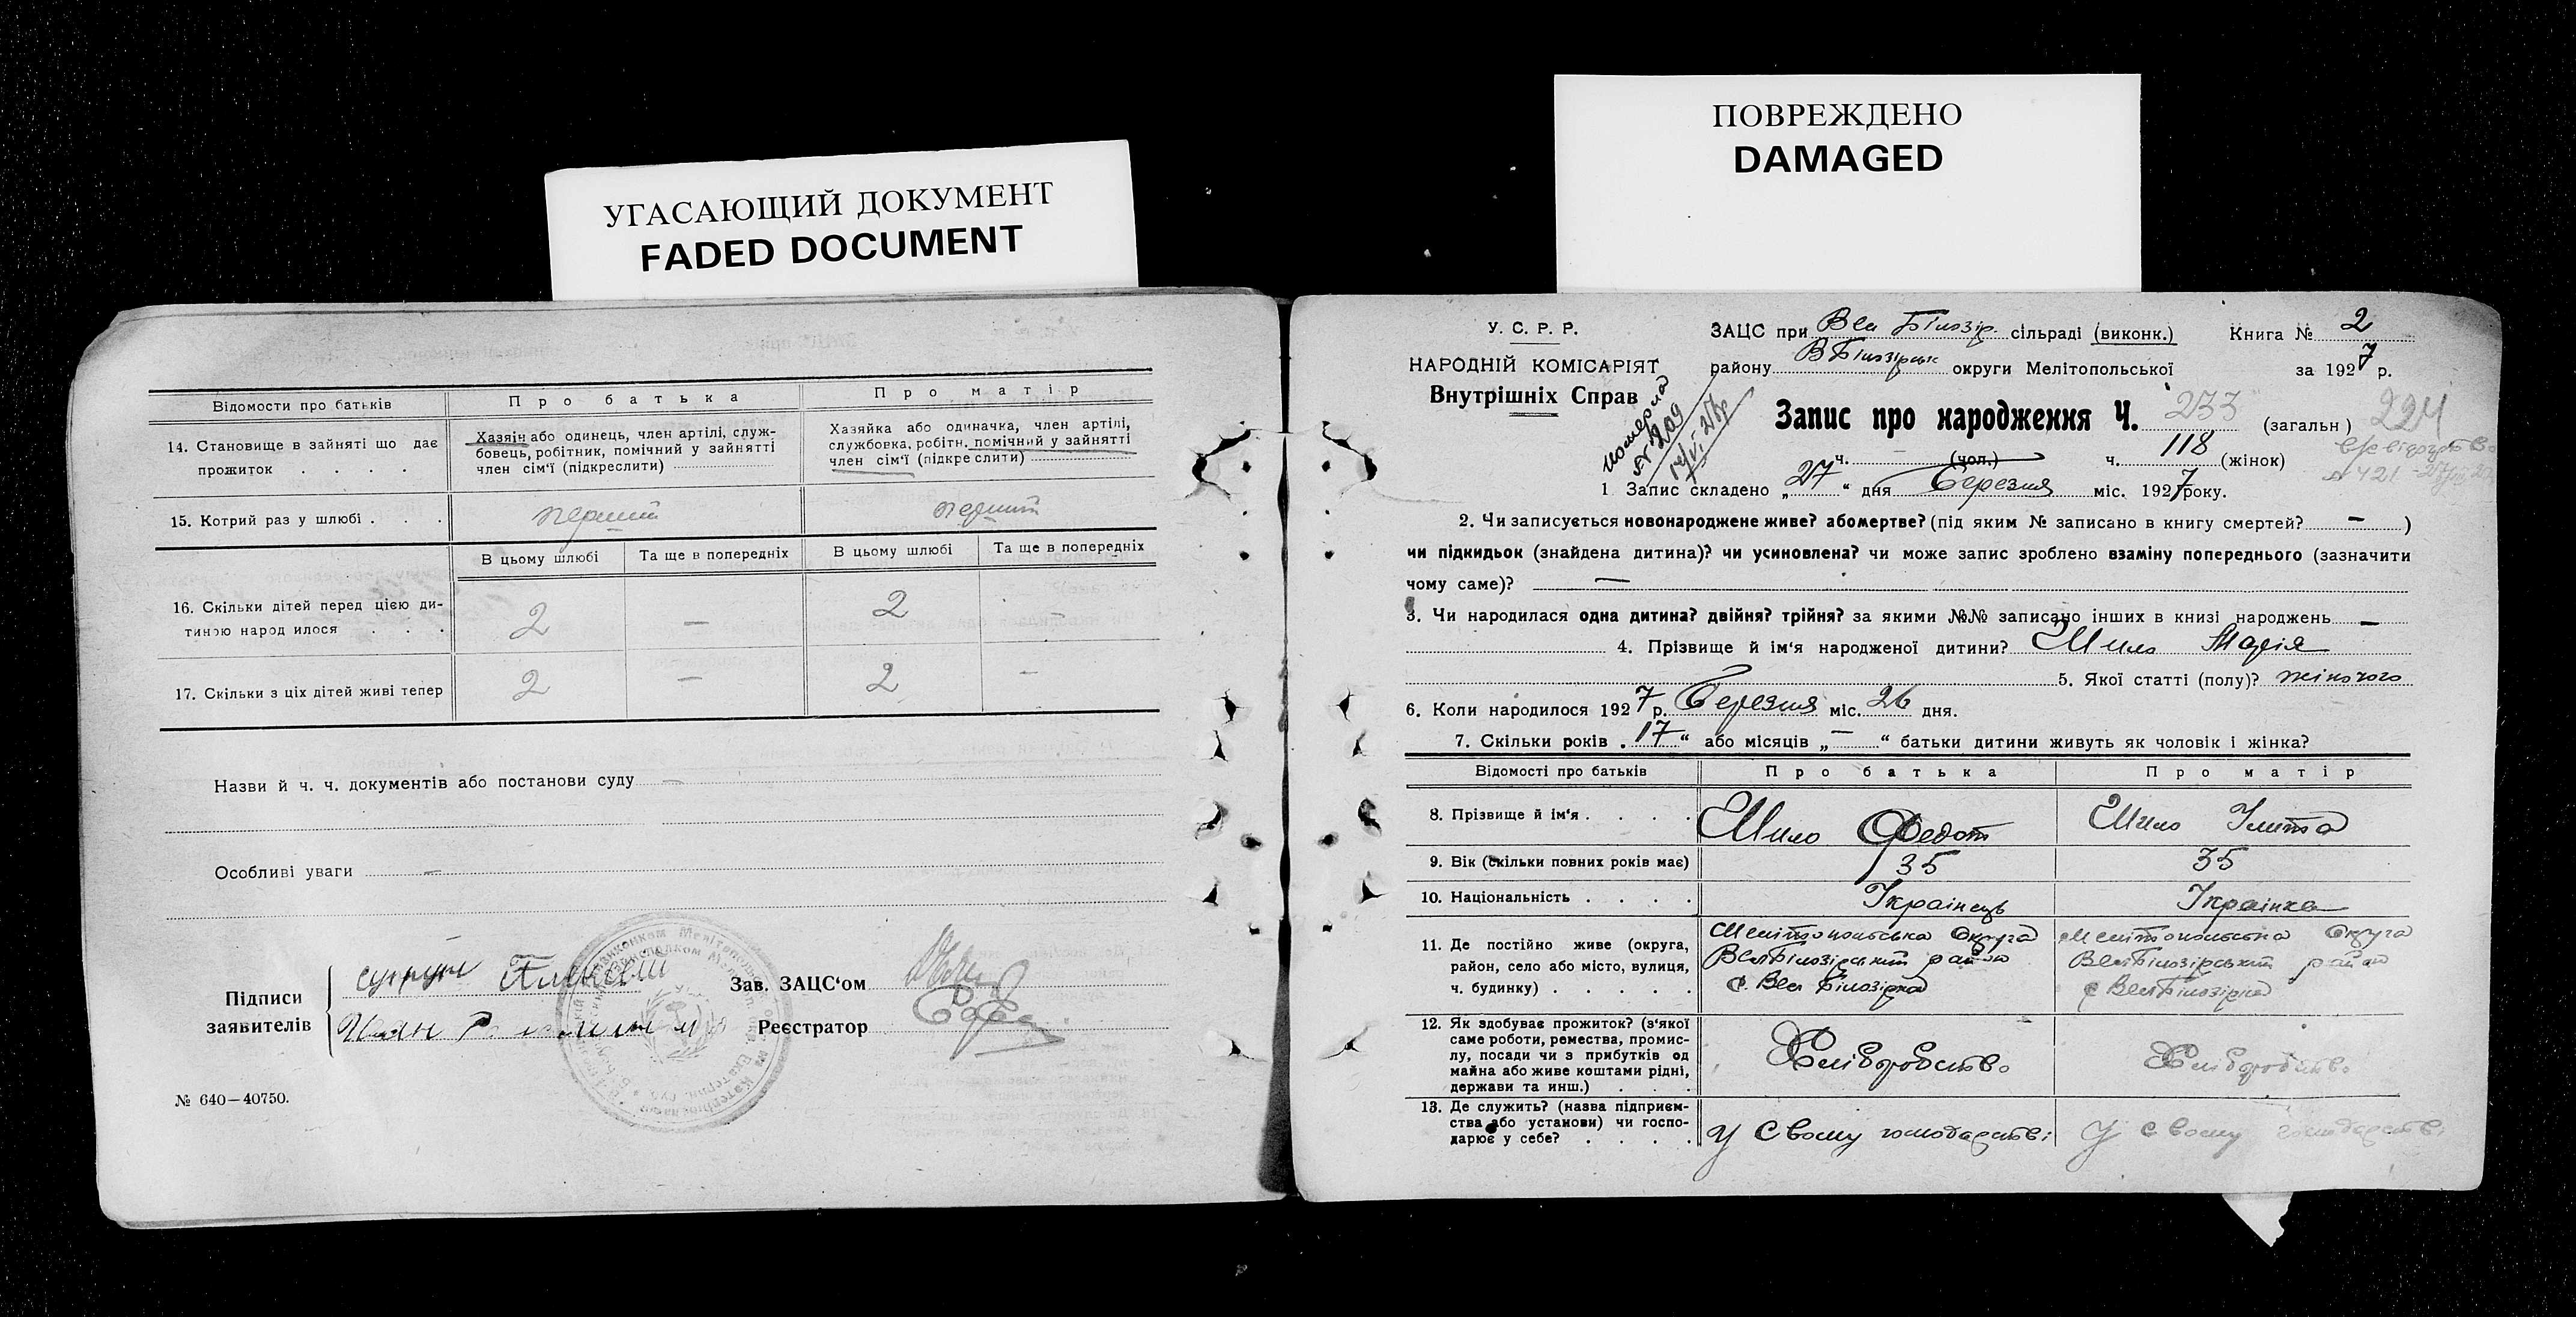 УГАСАЮЩИЙ ДОКУМЕНТ
FADED DOCUMENT
Відомости про батьків
Про батька
Про матір
14. Становище в зайняті що дає прожиток . . . .
Хазяїн або одинець, член артілі, служ-
бовець, робітник, помічний у зайнятті
член сім'ї (підкреслити)
Хазяйка або одиначка, член артілі,
службовка, робітн. помічний у зайнятті
член сім'ї (підкреслити)
15. Котрий раз у шлюбі . . .
перший
перший
В цьому шлюбі
Та ще в попередніх
В цьому шлюбі
Та ще в попередніх
16. Скільки дітей перед цією ди-
тиною народилося . . .
2 — 2 -
17. Скільки з ціх дітей живі тепер
2 — 2 —
Назви й ч. ч. документів або постанови суду —
Особливі уваги —
Підписи
заявителів
Зав. ЗАЦС'ом
Реєстратор
№ 640—40750.
ПОВРЕЖДЕНО
DAMAGED
У. С. Р. Р.
НАРОДНІЙ КОМІСАРІЯТ
Внутрішніх Справ
ЗАЦС при Вел Білозір. сільраді (виконк.) Книга № 2
району В Білозірськ округи Мелітопольської за 1927 р.
Запис про народження Ч. 233 (загальн) 224
ч. — (чол.) ч. 118 (жінок)
№ 421
1 Запис складено „27“ дня Березня міс. 1927 року.
2. Чи записується новонароджене живе? абомертве? (під яким № записано в книгу смертей? — )
чи підкидьок (знайдена дитина)? чи усиновлена? чи може запис зроблено взаміну попереднього (зазначити
чому саме)? —
3. Чи народилася одна дитина? двійня? трійня? за якими №№ записано інших в книзі народжень —
4. Прізвище й ім'я народженої дитини? Шило Марія
5. Якої статті (полу)? жіночого
6. Коли народилося 1927 р. Березня міс. 26 дня.
7. Скільки років „17“ або місяців „—“ батьки дитини живуть як чоловік і жінка?
Відомості про батьків
Про батька
Про матір
8. Прізвище й ім'я . . . .
Шило Федот
Шило Улита
9. Вік (скільки повних років має)
35
35
10. Національність . . . .
Українець
Українка
11. Де постійно живе (округа,
район, село або місто, вулиця,
ч. будинку) . . . . .
Мелітопольська Округа
Вел Білозірський район
с. Вел Білозірка
Мелітопольська Округа
Вел Білозірський район
с Вел Білозірка
12. Як здобуває прожиток? (з'якої
саме роботи, ремества, промис-
лу, посади чи з прибутків од
майна або живе коштами рідні,
держави та инш.) . . .
Хліборобство
Хліборобство
13. Де служить? (назва підприєм-
ства або установи) чи госпо-
дарює у себе? . . . .
У Свому господарстві
У Свому господарстві